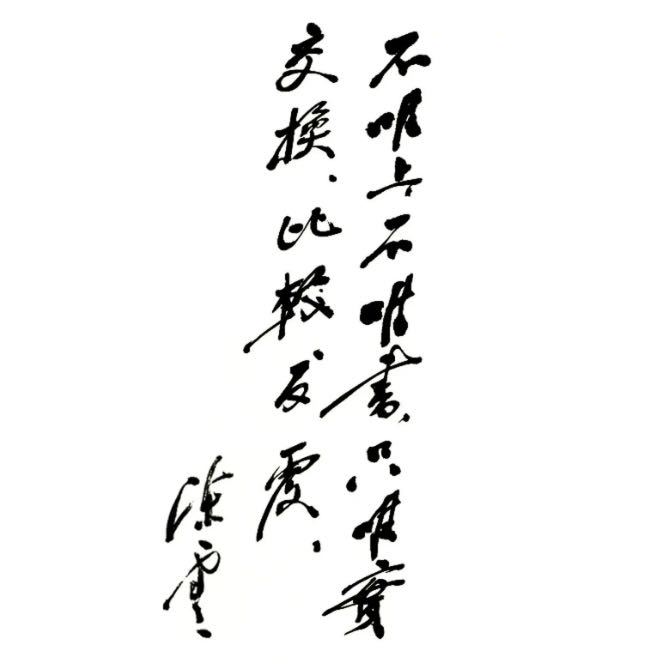 不唯上不唯書只唯實
交換、比較、反覆、
陳雲